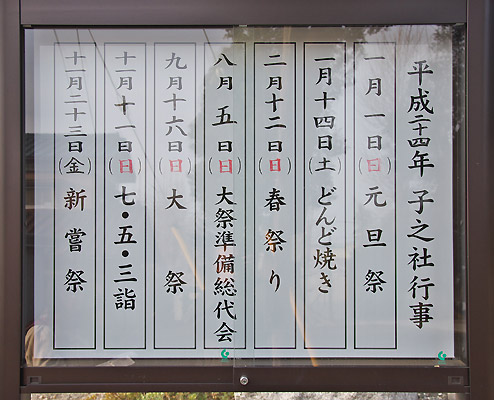 平成二十四年 子之社行事
一月一日(日) 元旦祭
一月十四日(土) どんど焼き
二月十二日(日) 春祭り
八月五日(日) 大祭準備総代会
九月十六日(日) 大祭
十一月十一日(日) 七・五・三詣
十一月二十三日(金) 新嘗祭